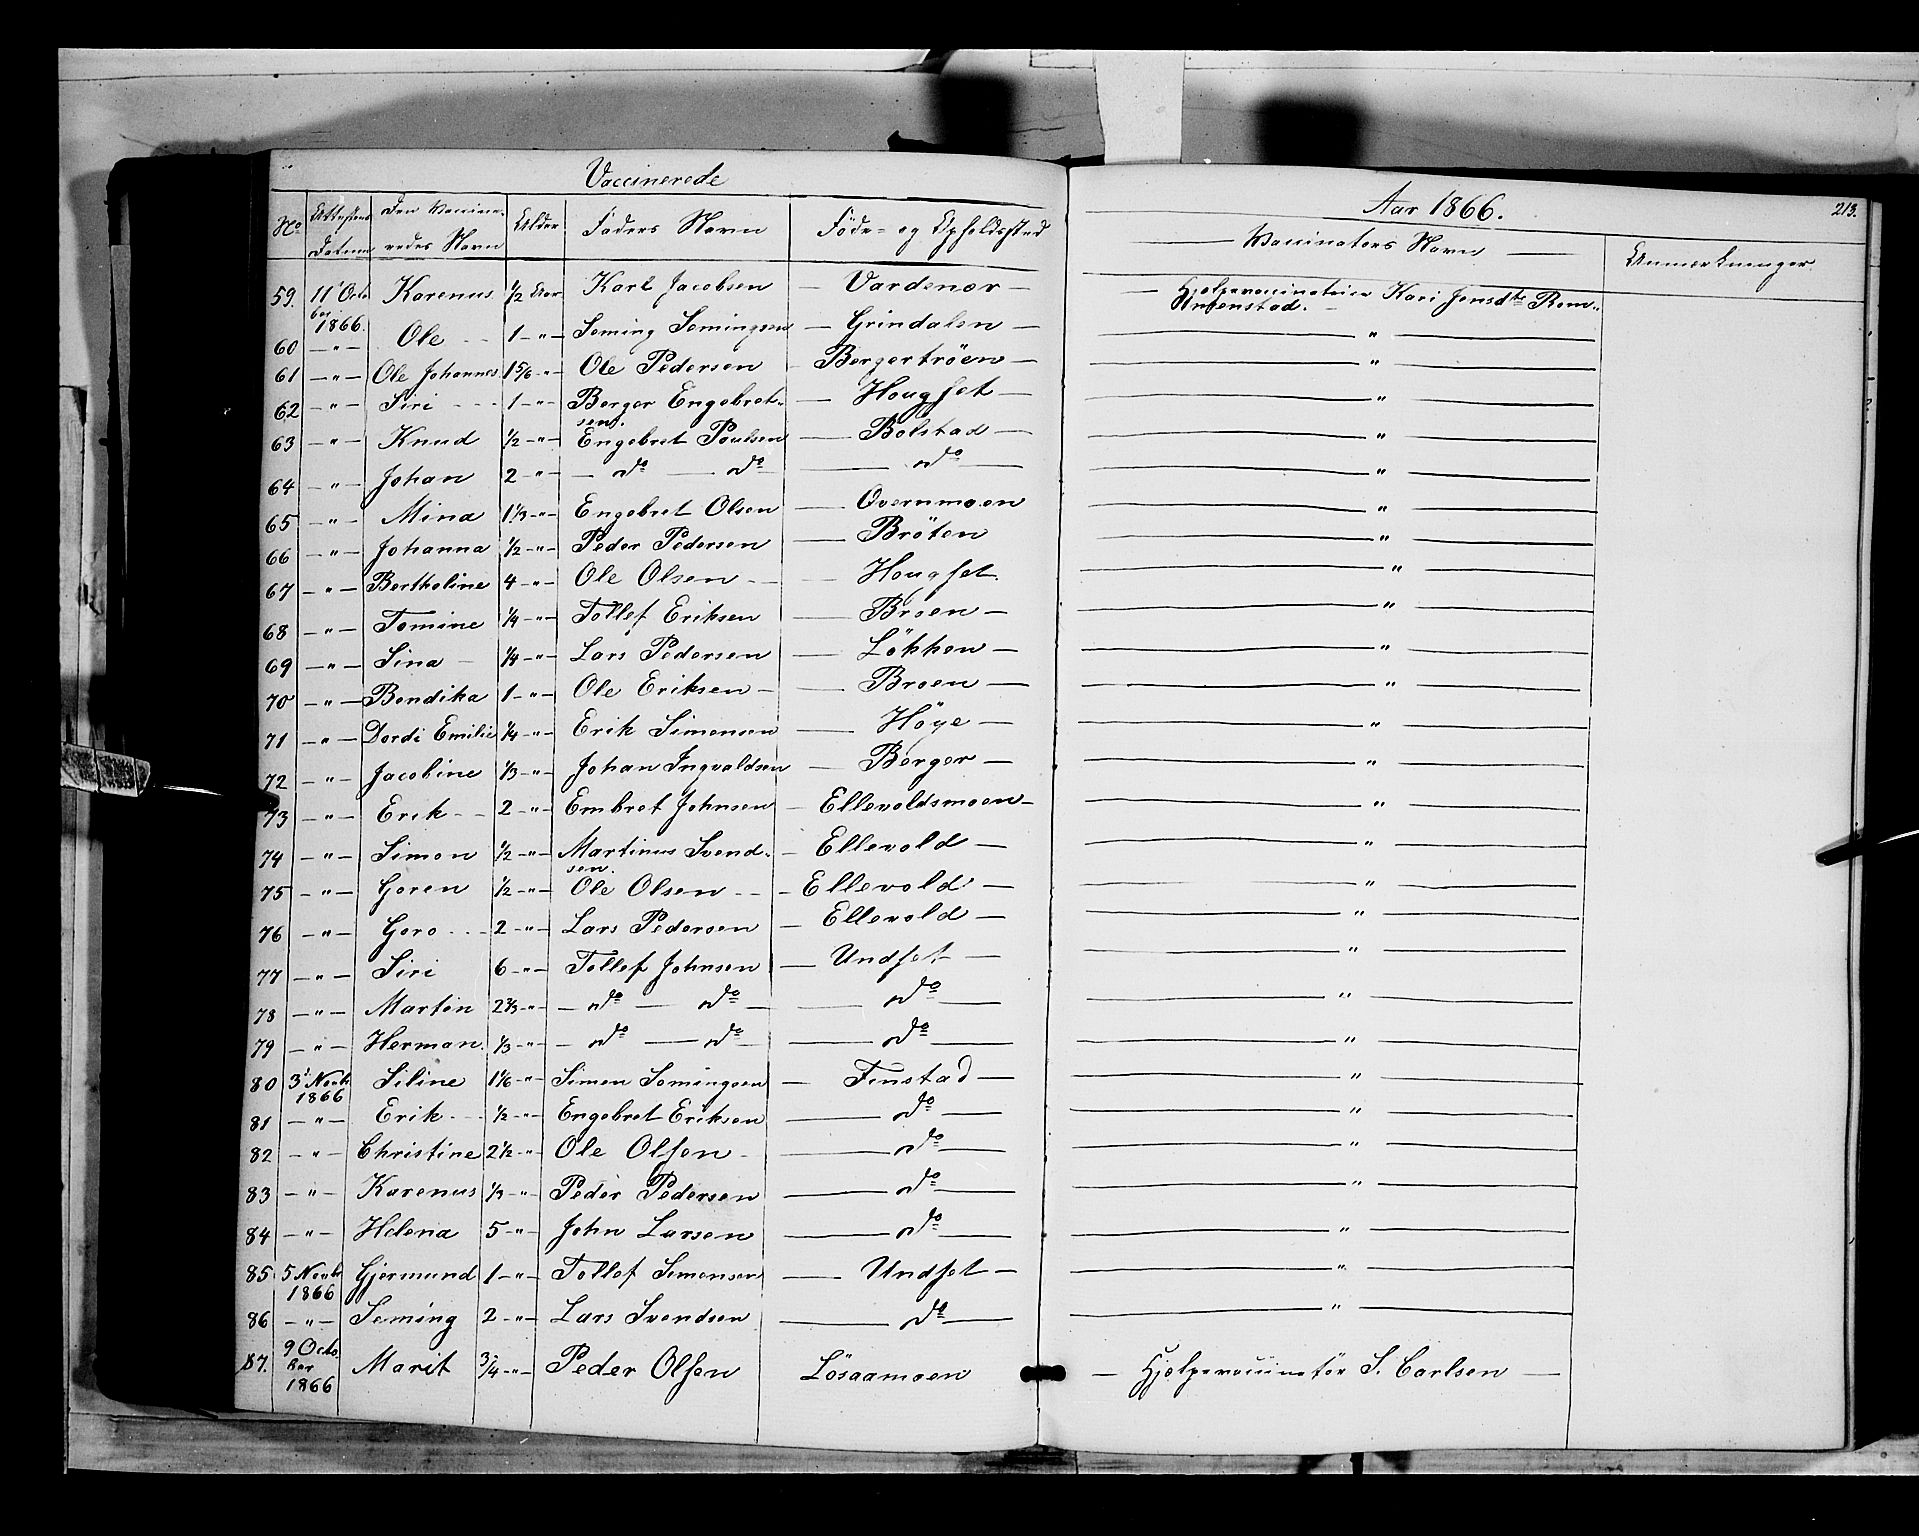 Vaccinerede
Aar 1866.
213.
No Attestens Datum Den Vaccineredes Navn Alder Faders Navn Føde- og Opholdssted
Vaccinators Navn Anmærkninger
59. 11' October 1866. Karenus 1/2 Aar Karl Jacobsen — Vardenær — Hjelpevaccinatrice Kari Jensdtr
60 —"— Ole 1 —"— Seming Semingsen — Grindalen — "
61 —"— Ole Johannes 1 5/6 —"— Ole Pedersen — Bergertröen — "
62 —"— Siri 1 —"— Berger Engebretsen. — Hougset — "
63 —"— Knud 1/2 —"— Engebret Poulsen — Bolstad — "
64 —"— Johan 2 —"— do — do — do — "
65 —"— Mina 1 1/3 —"— Engebret Olsen — Overnmoen "
66 —"— Johanna 1/2 —"— Peder Pedersen — Bröten "
67 —"— Bertholine 4 —"— Ole Olsen — Hougset. "
68 —"— Tomine 1/4 —"— Tollef Eriksen — Broen — "
69 —"— Sina — 1/4 —"— Lars Pedersen — Lökken — "
70 —"— Bendika 1 —"— Ole Eriksen — Broen — "
71 —"— Dordi Emilie 1/4 —"— Erik Simensen — Höye — "
72 —"— Jacobine 1/3 —"— Johan Ingvaldsen — Berger — "
73 —"— Erik 2 —"— Embret Johnsen — Ellevoldsmoen — "
74 —"— Simon 1/2 —"— Martinus Svendsen. — Ellevold — "
75 —"— Goren 1/2 —"— Ole Olsen — Ellevold — "
76 —"— Goro 2 —"— Lars Pedersen — Ellevold — "
77 —"— Siri 6 —"— Tollef Johnsen — Undset — "
78 —"— Martin 2 2/3 —"— do — do — do — "
79 —"— Herman. 1/3 —"— do — do — do — "
80 3' Novbr 1866 Siline 1 1/6 —"— Simen Semingsen — Finstad — "
81 —"— Erik 1/2 —"— Engebret Eriksen — do — "
82 —"— Christine 2 1/2 —"— Ole Olsen — do — "
83 —"— Karenus 1/3 —"— Peder Pedersen — do — "
84 —"— Helena 5 —"— John Larsen — do — "
85 5 Novbr 1866 Gjermund 1 —"— Tollef Simensen — Undset — "
86 —"— Seming 2 —"— Lars Svendsen — do — "
87. 9 October 1866 Marit 3/4 —"— Peder Olsen Lösaamoen — Hjelpevaccinatör S. Carlsen —